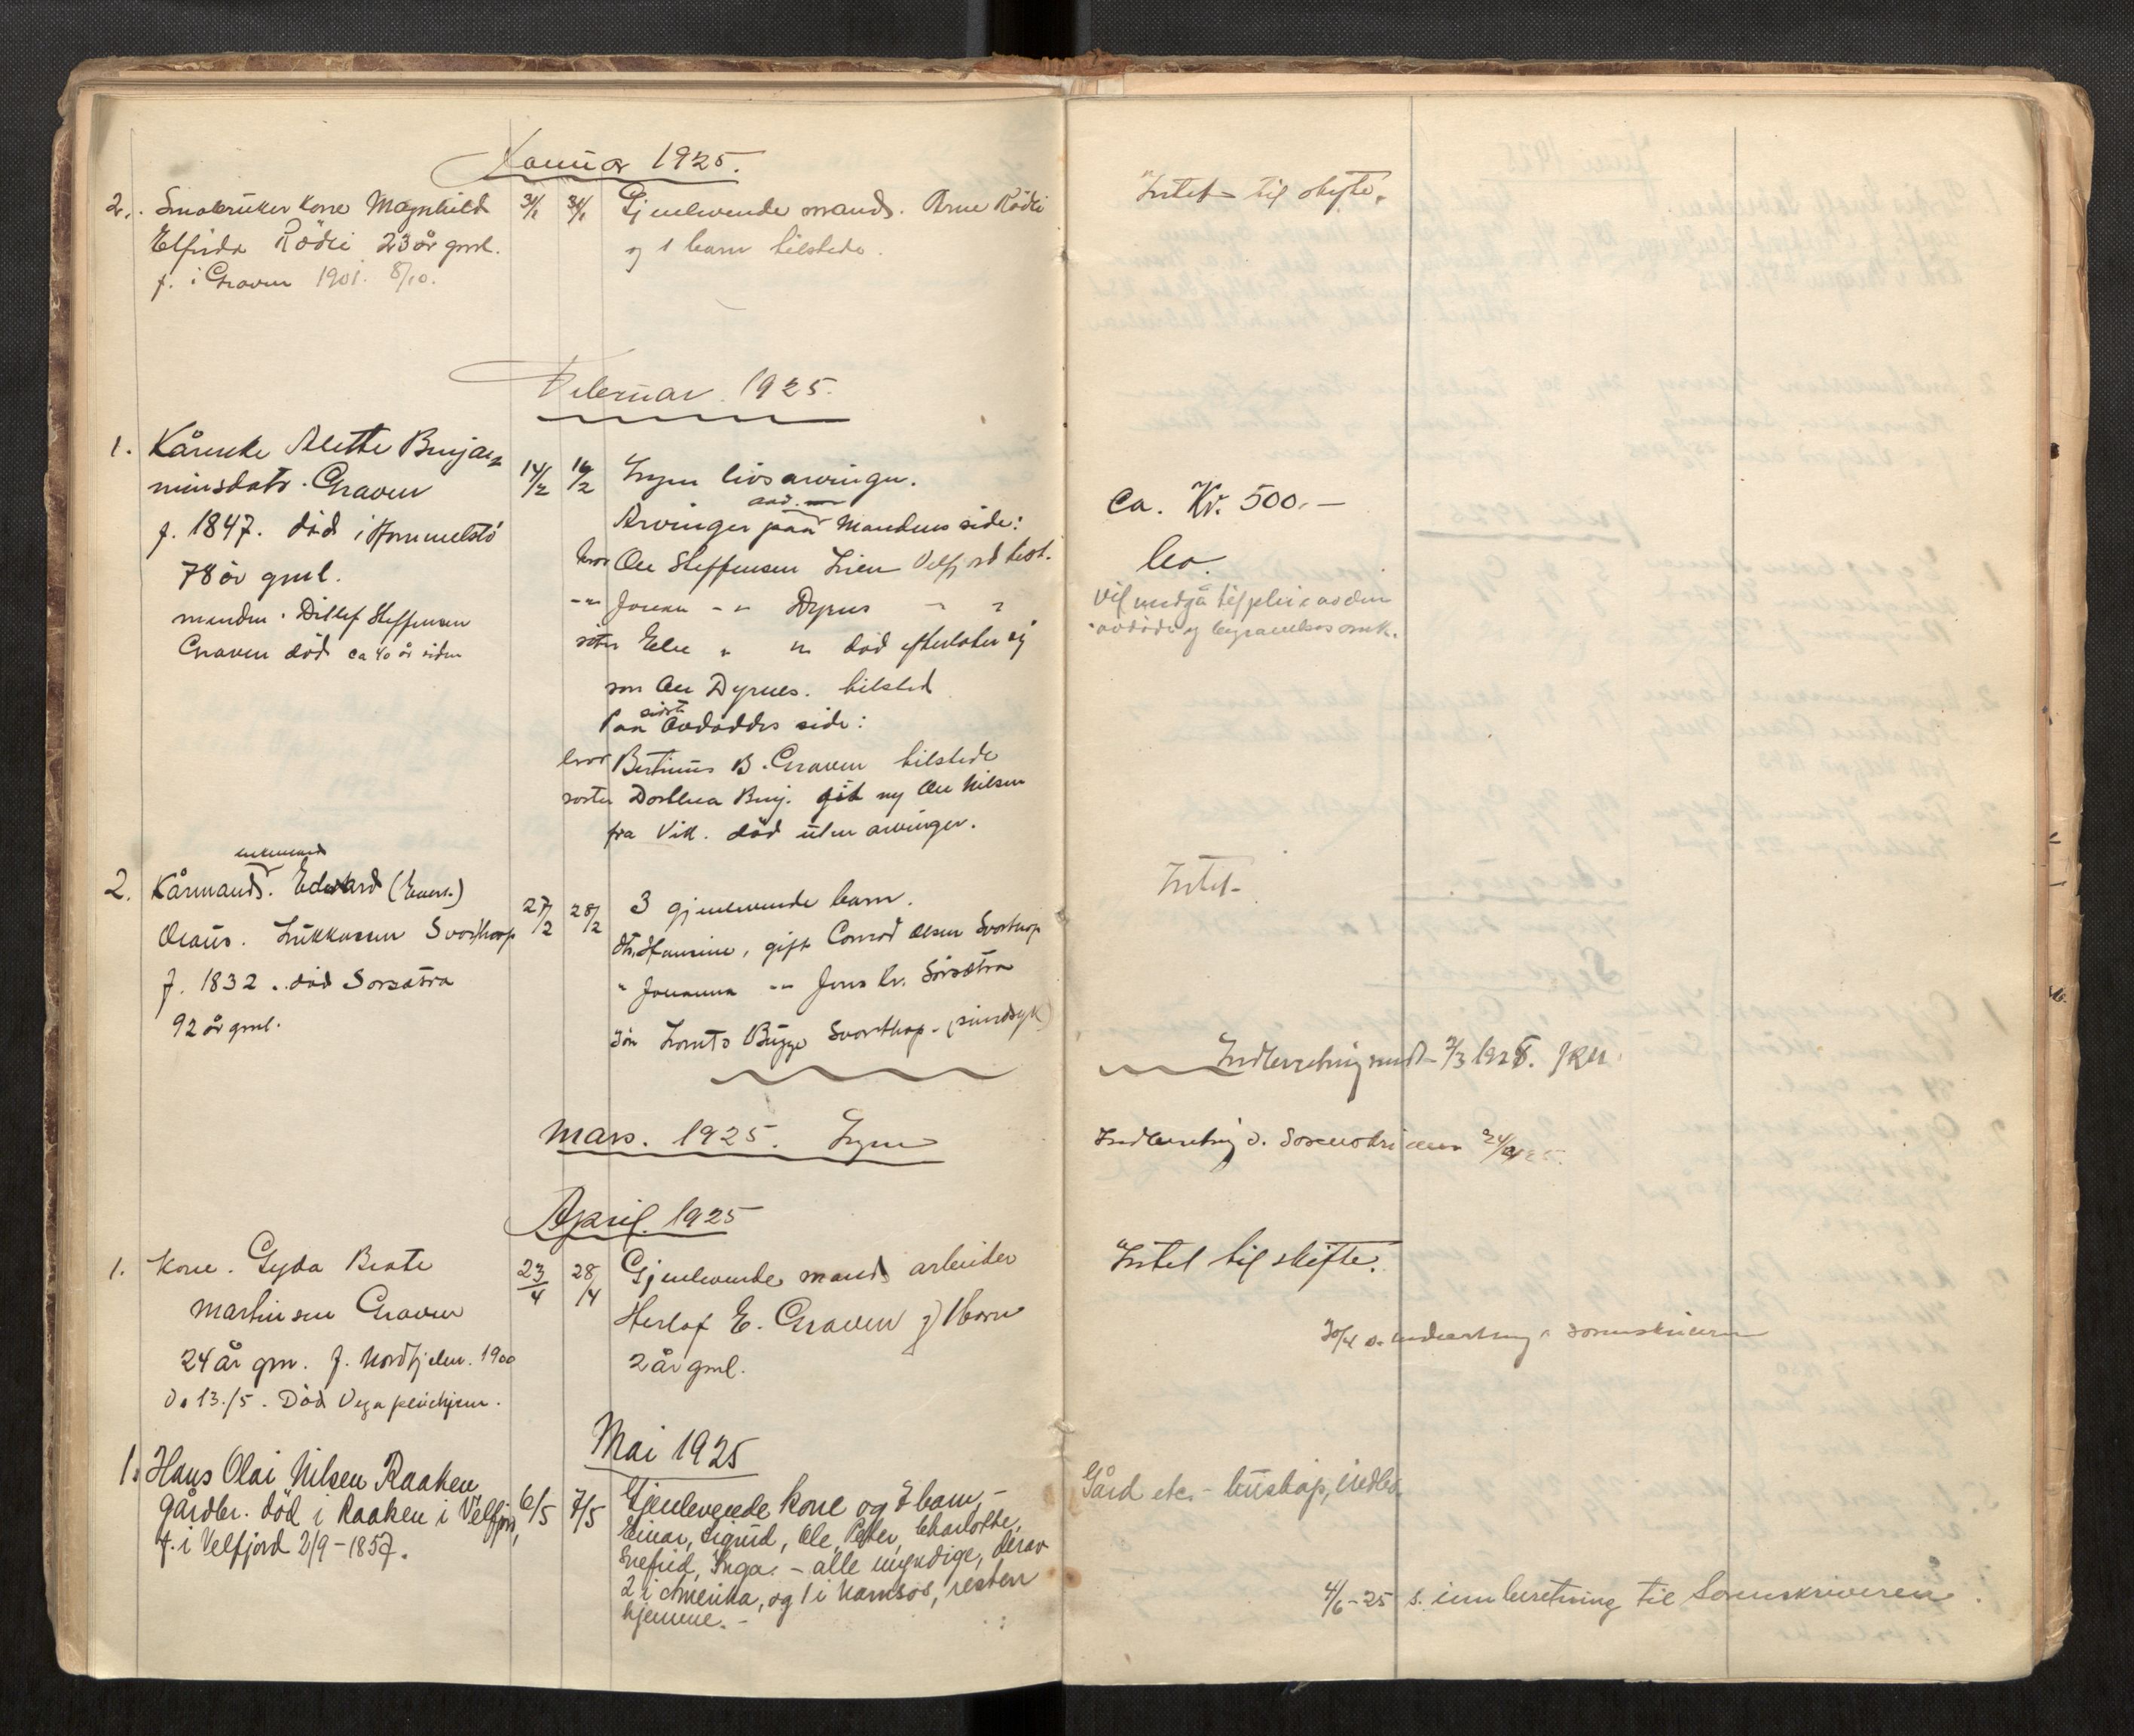 Januar 1925.
2. Småbruker kone Magnhild
Elfrida Rödli 23 år gml.
f. i Graven 1901. 8/10.
31/1 31/1
Gjenlevende mand. Arne Rödli
og 1 barn tilstede.
Intet til skifte.
Februar 1925.
1. Kårenke Alette Benja-
minsdatr. Graven
f. 1847. död i Hommelstö
78 år gml.
manden. Ditlef Steffensen
Graven död ca 40 år siden
14/2 16/2
Ingen livsarvinger.
Arvinger paa Mandens side:
bror Ole Steffensen Lien Velfjord test.
-"- Johan -"- Dyrnes
söster Else " " död efterlater sig
sön Ole Dyrnes. tilsted
Paa sidst Avdöddes side:
bror Bertinus B. Graven tilstede
söster Dorthea Benj. gift m/ Ole Nilsen
fra Vik. död uten arvinger.
Ca. Kr. 500.-
leo.
Vil medgå til pleie av den
avdöde og begravelsesomk.
2. Kårmand. enkemand Edvard (Evert.)
Olaus. Lukkassen Svarthop
f. 1832. död Sörsætra
92 år gml.
27/2 28/2
3 gjenlevende barn.
dtr. Hansine, gift Conrad Olsen Svarthop
" Johanna -"- Jens Kr. Sörsætra
Sön Lorents Bugge Svarthop - (sindsyk)
Intet
Indberetning sendt 2/3 1925.
Mars. 1925. Ingen
Indberetning s. Sorenskriveren
April. 1925
1. Kone. Gyda Beate
Martinsen Graven
24 år gm. f. Nordfjelen. 1900
d. 13./5. Död Vega pleiehjem.
23/4 28/4
Gjenlevende mand arbeider
Herlof E. Graven og 1 barn
2 år gml.
Intet til skifte.
30/4 s. indberetning sorenskriveren
Mai 1925
1. Hans Olai Nilsen Raaken
gårdbr. död i Raaken i Velfjord,
f. i Velfjord 2/9-1857.
6/5 7/5
Gjenlevende kone og 7 barn,-
Einar, Sigrud, Ole, Petter, Charlotte,
Snefrid, Inga. - alle myndige, derav
2 i Amerika, og 1 i Namsos, resten
hjemme.-
Gård etc - buskap, indbo
4/6-25 s. innberetning til Sorenskriveren.